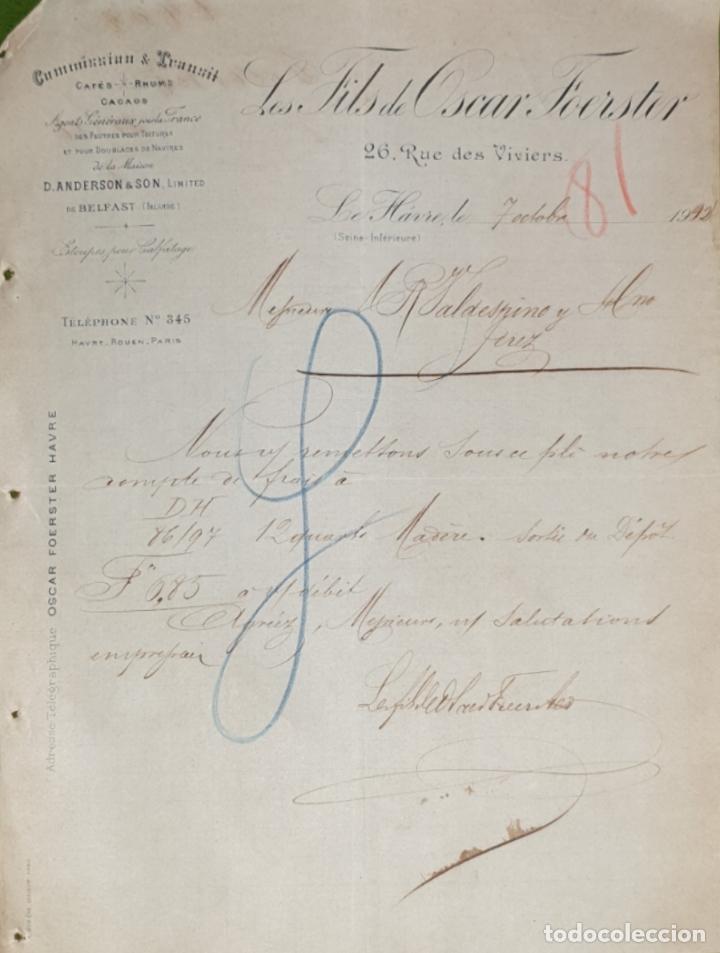 Commission & Transit
CAFÉS RHUMS
CACAOS
Agents Généraux pour la France
DES FEUTRES POUR TOITURES
ET POUR DOUBLAGES DE NAVIRES
de la Maison
D. ANDERSON & SON, LIMITED
DE BELFAST (IRLANDE)
Étoupes pour Calfatage
TÉLÉPHONE No 345
HAVRE, ROUEN, PARIS
Adresse Télégraphique OSCAR FOERSTER HAVRE
Les Fils de Oscar Foerster
26, Rue des Viviers.
81
Le Hâvre, le 7 octobre 19
(Seine-Inférieure)
Messieurs R Valdespino y Hno
Jerez
Nous vs remettons sous ce pli notre
compte de frais à
DH
86/97 12 quarts Madère. Sortie du Dépôt
Fs 6,85 à v/débit
Agréez, Messieurs, n/ salutations
empressées
Les fils de Oscar Foerster
todocoleccion
todocoleccion.net